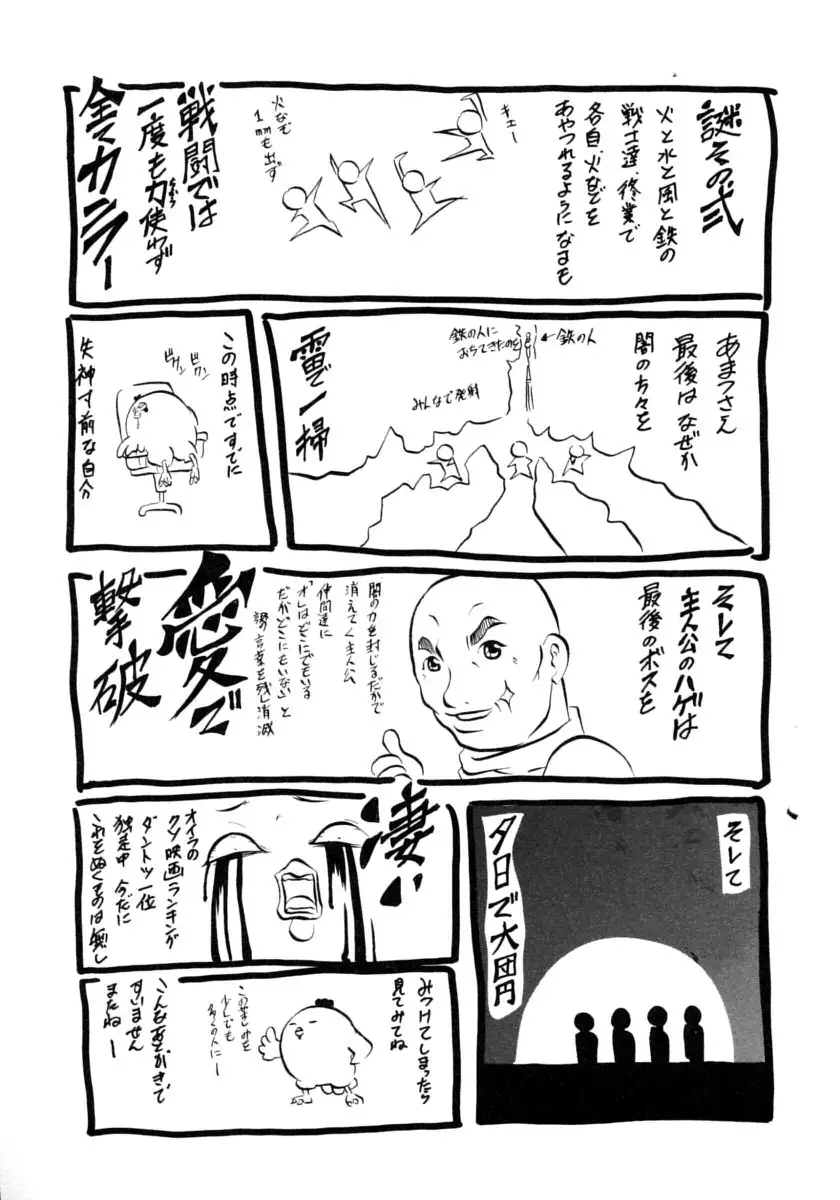 謎その弐
火と水と風と鉄の
戦士達、修業で
各自、火などを
あやつれるようになるも
キェー
火なで
1mmも出ず
戦闘では
一度も力使わず
全てカラー
あまつさえ
最後はなぜか
闇の方々を
←鉄の人
鉄の人に
おちてきたのを
みんなで発射
雷で一掃
この時点ですでに
ビクン
ビクン
失神寸前な自分
そして
主人公のハゲは
最後のボスを
闇の力を封じるだかで
消えてく主人公
仲間達に
「オレはどこにでもいる
だがどこにもいない」と
謎の言葉を残し消滅
愛で
撃破
そして
夕日で大団円
凄い
オイラの
クソ映画ランキングが
ダントツ一位
独走中 今だに
これをぬくものは無し
みつけてしまったら
見てみてね
この苦しみを
少しでも
多くの人にー
こんなあとがきで
すいません
またねー